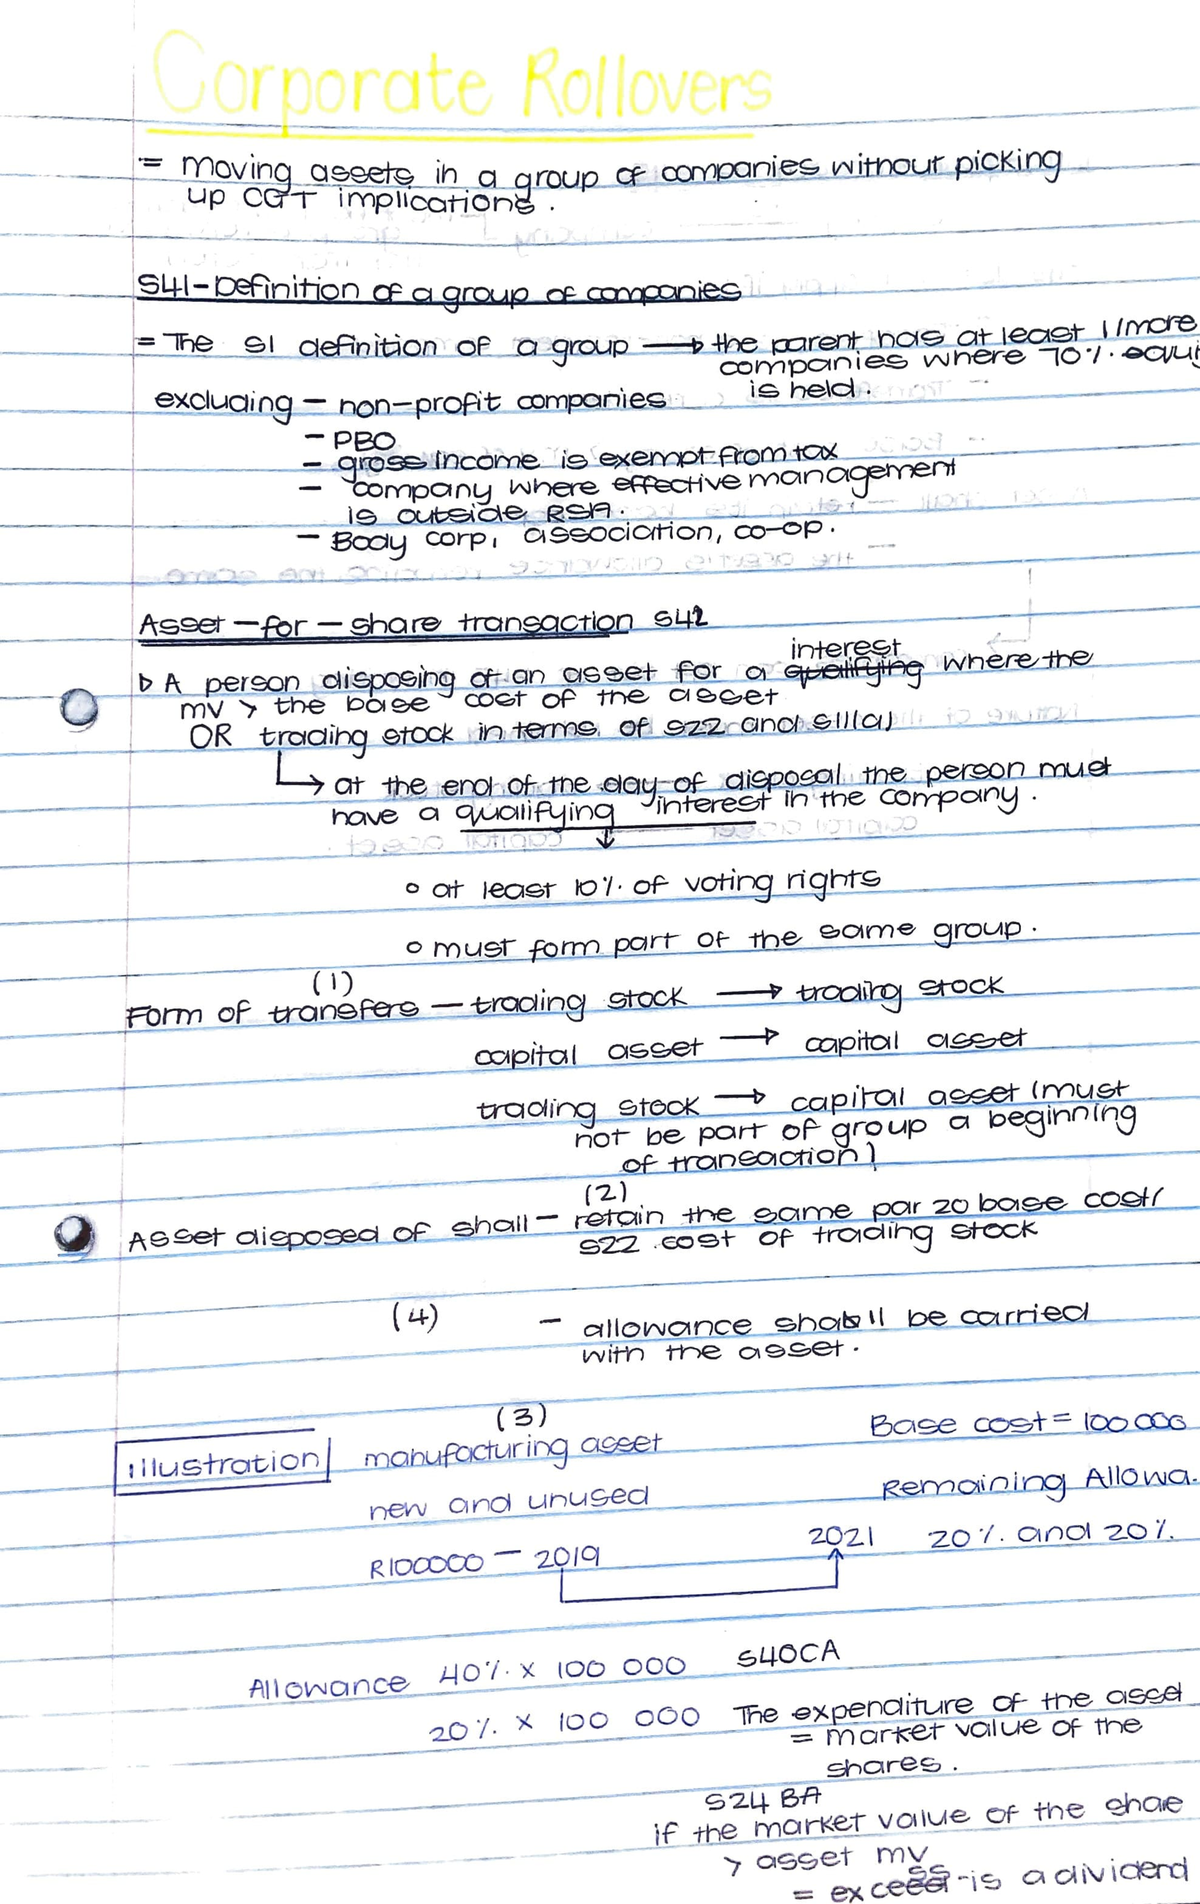 Corporate Rollovers
= moving assets in a group of companies without picking
up CGT implications.
S41-Definition of a group of companies
= The S1 definition of a group → the parent has at least 1/more
companies where 70% equi
is held.
excluding - non-profit companies
- PBO
- gross income is exempt from tax
- company where effective management
is outside RSA.
- Body corp, association, co-op.
Asset-for-share transaction S42
interest
▷ A person disposing of an asset for a qualifying where the
mv > the base cost of the asset
OR trading stock in terms of S22 and S11(a)
↳ at the end of the day of disposal the person must
have a qualifying interest in the company.
↓
o at least 10% of voting rights
o must form part of the same group.
(1)
Form of transfers - trading stock → trading stock
capital asset → capital asset
trading stock → capital asset (must
not be part of group a beginning
of transaction)
(2)
Asset disposed of shall - retain the same par 20 base cost/
S22 cost of trading stock
(4) - allowance shall be carried
with the asset.
(3)
Illustration manufacturing asset Base cost = 100 000
new and unused Remaining Allowa.
R100000 - 2019 2021 20% and 20%.
Allowance 40% x 100 000 S40CA
20% x 100 000 The expenditure of the asset
= market value of the
shares.
S24 BA
if the market value of the share
> asset mv
= excess is a dividend